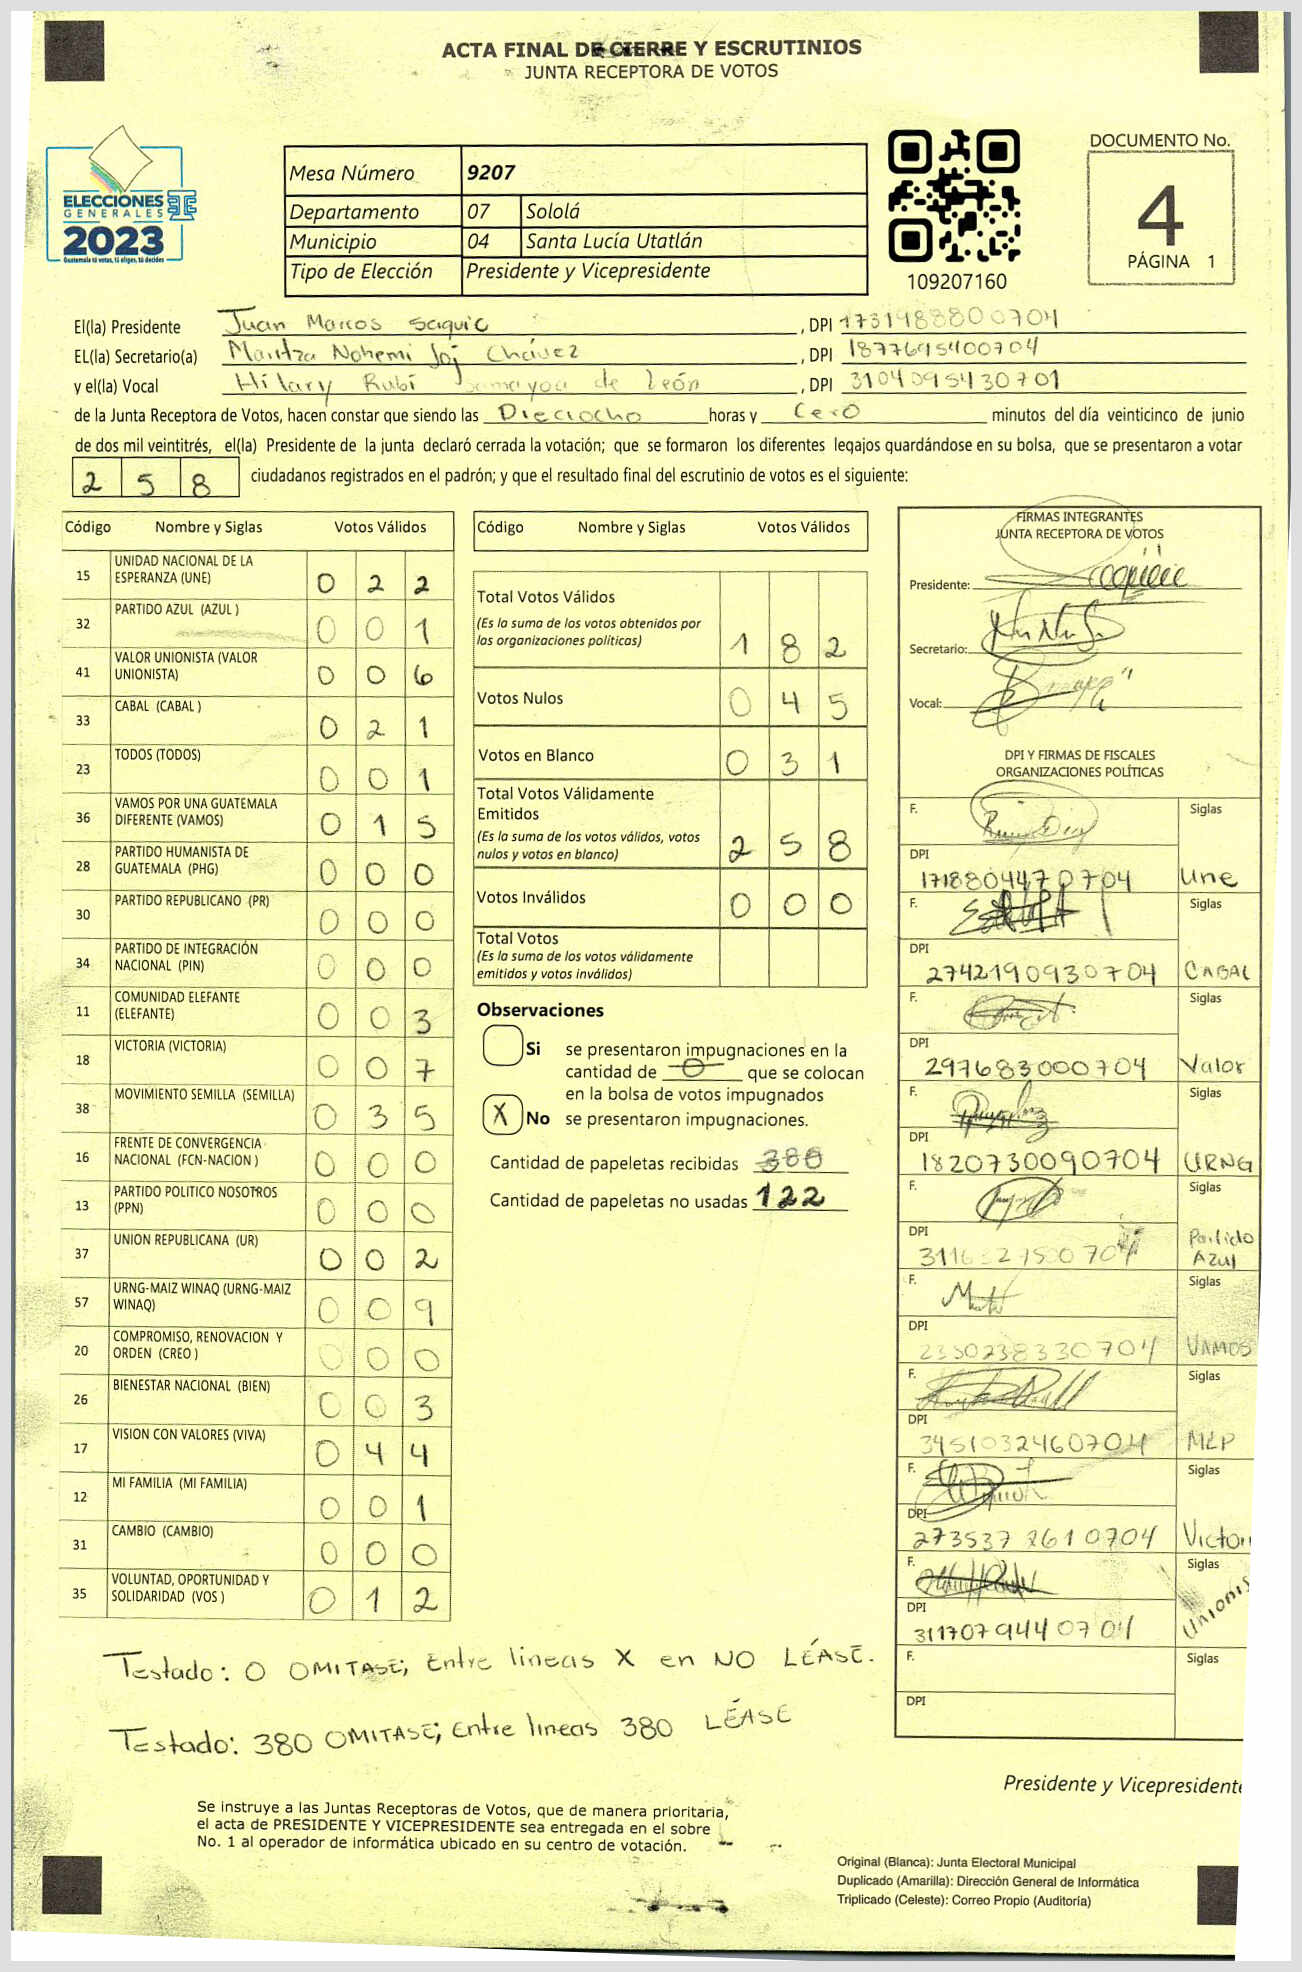 ACTA FINAL DE CIERRE Y ESCRUTINIOS
JUNTA RECEPTORA DE VOTOS
ELECCIONES
GENERALES
2023
Guatemala tú votas, tú eliges, tú decides
Mesa Número 9207
Departamento 07 Sololá
Municipio 04 Santa Lucía Utatlán
Tipo de Elección Presidente y Vicepresidente
109207160
DOCUMENTO No.
4
PÁGINA 1
El(la) Presidente Juan Marcos Saquic, DPI 1731988800704
EL(la) Secretario(a) Maritza Nohemi Joj Chávez, DPI 1877695400704
y el(la) Vocal Hilary Rubí Samayoa de León, DPI 3104095430701
de la Junta Receptora de Votos, hacen constar que siendo las Dieciocho horas y Cero minutos del día veinticinco de junio
de dos mil veintitrés, el(la) Presidente de la junta declaró cerrada la votación; que se formaron los diferentes legajos quardándose en su bolsa, que se presentaron a votar
2 5 8 ciudadanos registrados en el padrón; y que el resultado final del escrutinio de votos es el siguiente:
Código Nombre y Siglas Votos Válidos
15 UNIDAD NACIONAL DE LA ESPERANZA (UNE) 0 2 2
32 PARTIDO AZUL (AZUL ) 0 0 1
41 VALOR UNIONISTA (VALOR UNIONISTA) 0 0 6
33 CABAL (CABAL ) 0 2 1
23 TODOS (TODOS) 0 0 1
36 VAMOS POR UNA GUATEMALA DIFERENTE (VAMOS) 0 1 5
28 PARTIDO HUMANISTA DE GUATEMALA (PHG) 0 0 0
30 PARTIDO REPUBLICANO (PR) 0 0 0
34 PARTIDO DE INTEGRACIÓN NACIONAL (PIN) 0 0 0
11 COMUNIDAD ELEFANTE (ELEFANTE) 0 0 3
18 VICTORIA (VICTORIA) 0 0 7
38 MOVIMIENTO SEMILLA (SEMILLA) 0 3 5
16 FRENTE DE CONVERGENCIA NACIONAL (FCN-NACION ) 0 0 0
13 PARTIDO POLITICO NOSOTROS (PPN) 0 0 0
37 UNION REPUBLICANA (UR) 0 0 2
57 URNG-MAIZ WINAQ (URNG-MAIZ WINAQ) 0 0 9
20 COMPROMISO, RENOVACION Y ORDEN (CREO ) 0 0 0
26 BIENESTAR NACIONAL (BIEN) 0 0 3
17 VISION CON VALORES (VIVA) 0 4 4
12 MI FAMILIA (MI FAMILIA) 0 0 1
31 CAMBIO (CAMBIO) 0 0 0
35 VOLUNTAD, OPORTUNIDAD Y SOLIDARIDAD (VOS ) 0 1 2
Código Nombre y Siglas Votos Válidos
Total Votos Válidos
(Es la suma de los votos obtenidos por
las organizaciones politicas) 1 8 2
Votos Nulos 0 4 5
Votos en Blanco 0 3 1
Total Votos Válidamente
Emitidos
(Es la suma de los votos válidos, votos
nulos y votos en blanco) 2 5 8
Votos Inválidos 0 0 0
Total Votos
(Es la suma de los votos válidamente
emitidos y votos inválidos)
Observaciones
Si se presentaron impugnaciones en la
cantidad de 0 que se colocan
en la bolsa de votos impugnados
X No se presentaron impugnaciones.
Cantidad de papeletas recibidas 380
Cantidad de papeletas no usadas 122
FIRMAS INTEGRANTES
JUNTA RECEPTORA DE VOTOS
Presidente:
Secretario:
Vocal:
DPI Y FIRMAS DE FISCALES
ORGANIZACIONES POLÍTICAS
F. Siglas
DPI
1718804470704 Une
F. Siglas
DPI
2742190930704 CABAL
F. Siglas
DPI
297683000704 Valor
F. Siglas
DPI
1820730090704 URNG
F. Siglas
DPI
Partido
Azul
F. Siglas
DPI
2350238330704 VAMOS
F. Siglas
DPI
3451032460704 MLP
F. Siglas
DPI
Victori
F. Siglas
DPI
3117079440704 UNIONIS
F. Siglas
DPI
Testado: 0 OMITASE; Entre lineas X en NO LÉASE.
Testado: 380 OMITASE; Entre lineas 380 LÉASE
Presidente y Vicepresidente
Se instruye a las Juntas Receptoras de Votos, que de manera prioritaria,
el acta de PRESIDENTE Y VICEPRESIDENTE sea entregada en el sobre
No. 1 al operador de informática ubicado en su centro de votación.
Original (Blanca): Junta Electoral Municipal
Duplicado (Amarilla): Dirección General de Informática
Triplicado (Celeste): Correo Propio (Auditoría)